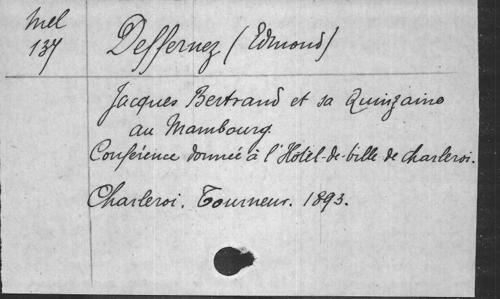 Mel
137
Deffernez (Edmond)
Jacques Bertrand et sa Quinzaine
au Mambourg.
Conférence donnée à l'Hôtel-de-ville de Charleroi.
Charleroi. Tourneur. 1893.